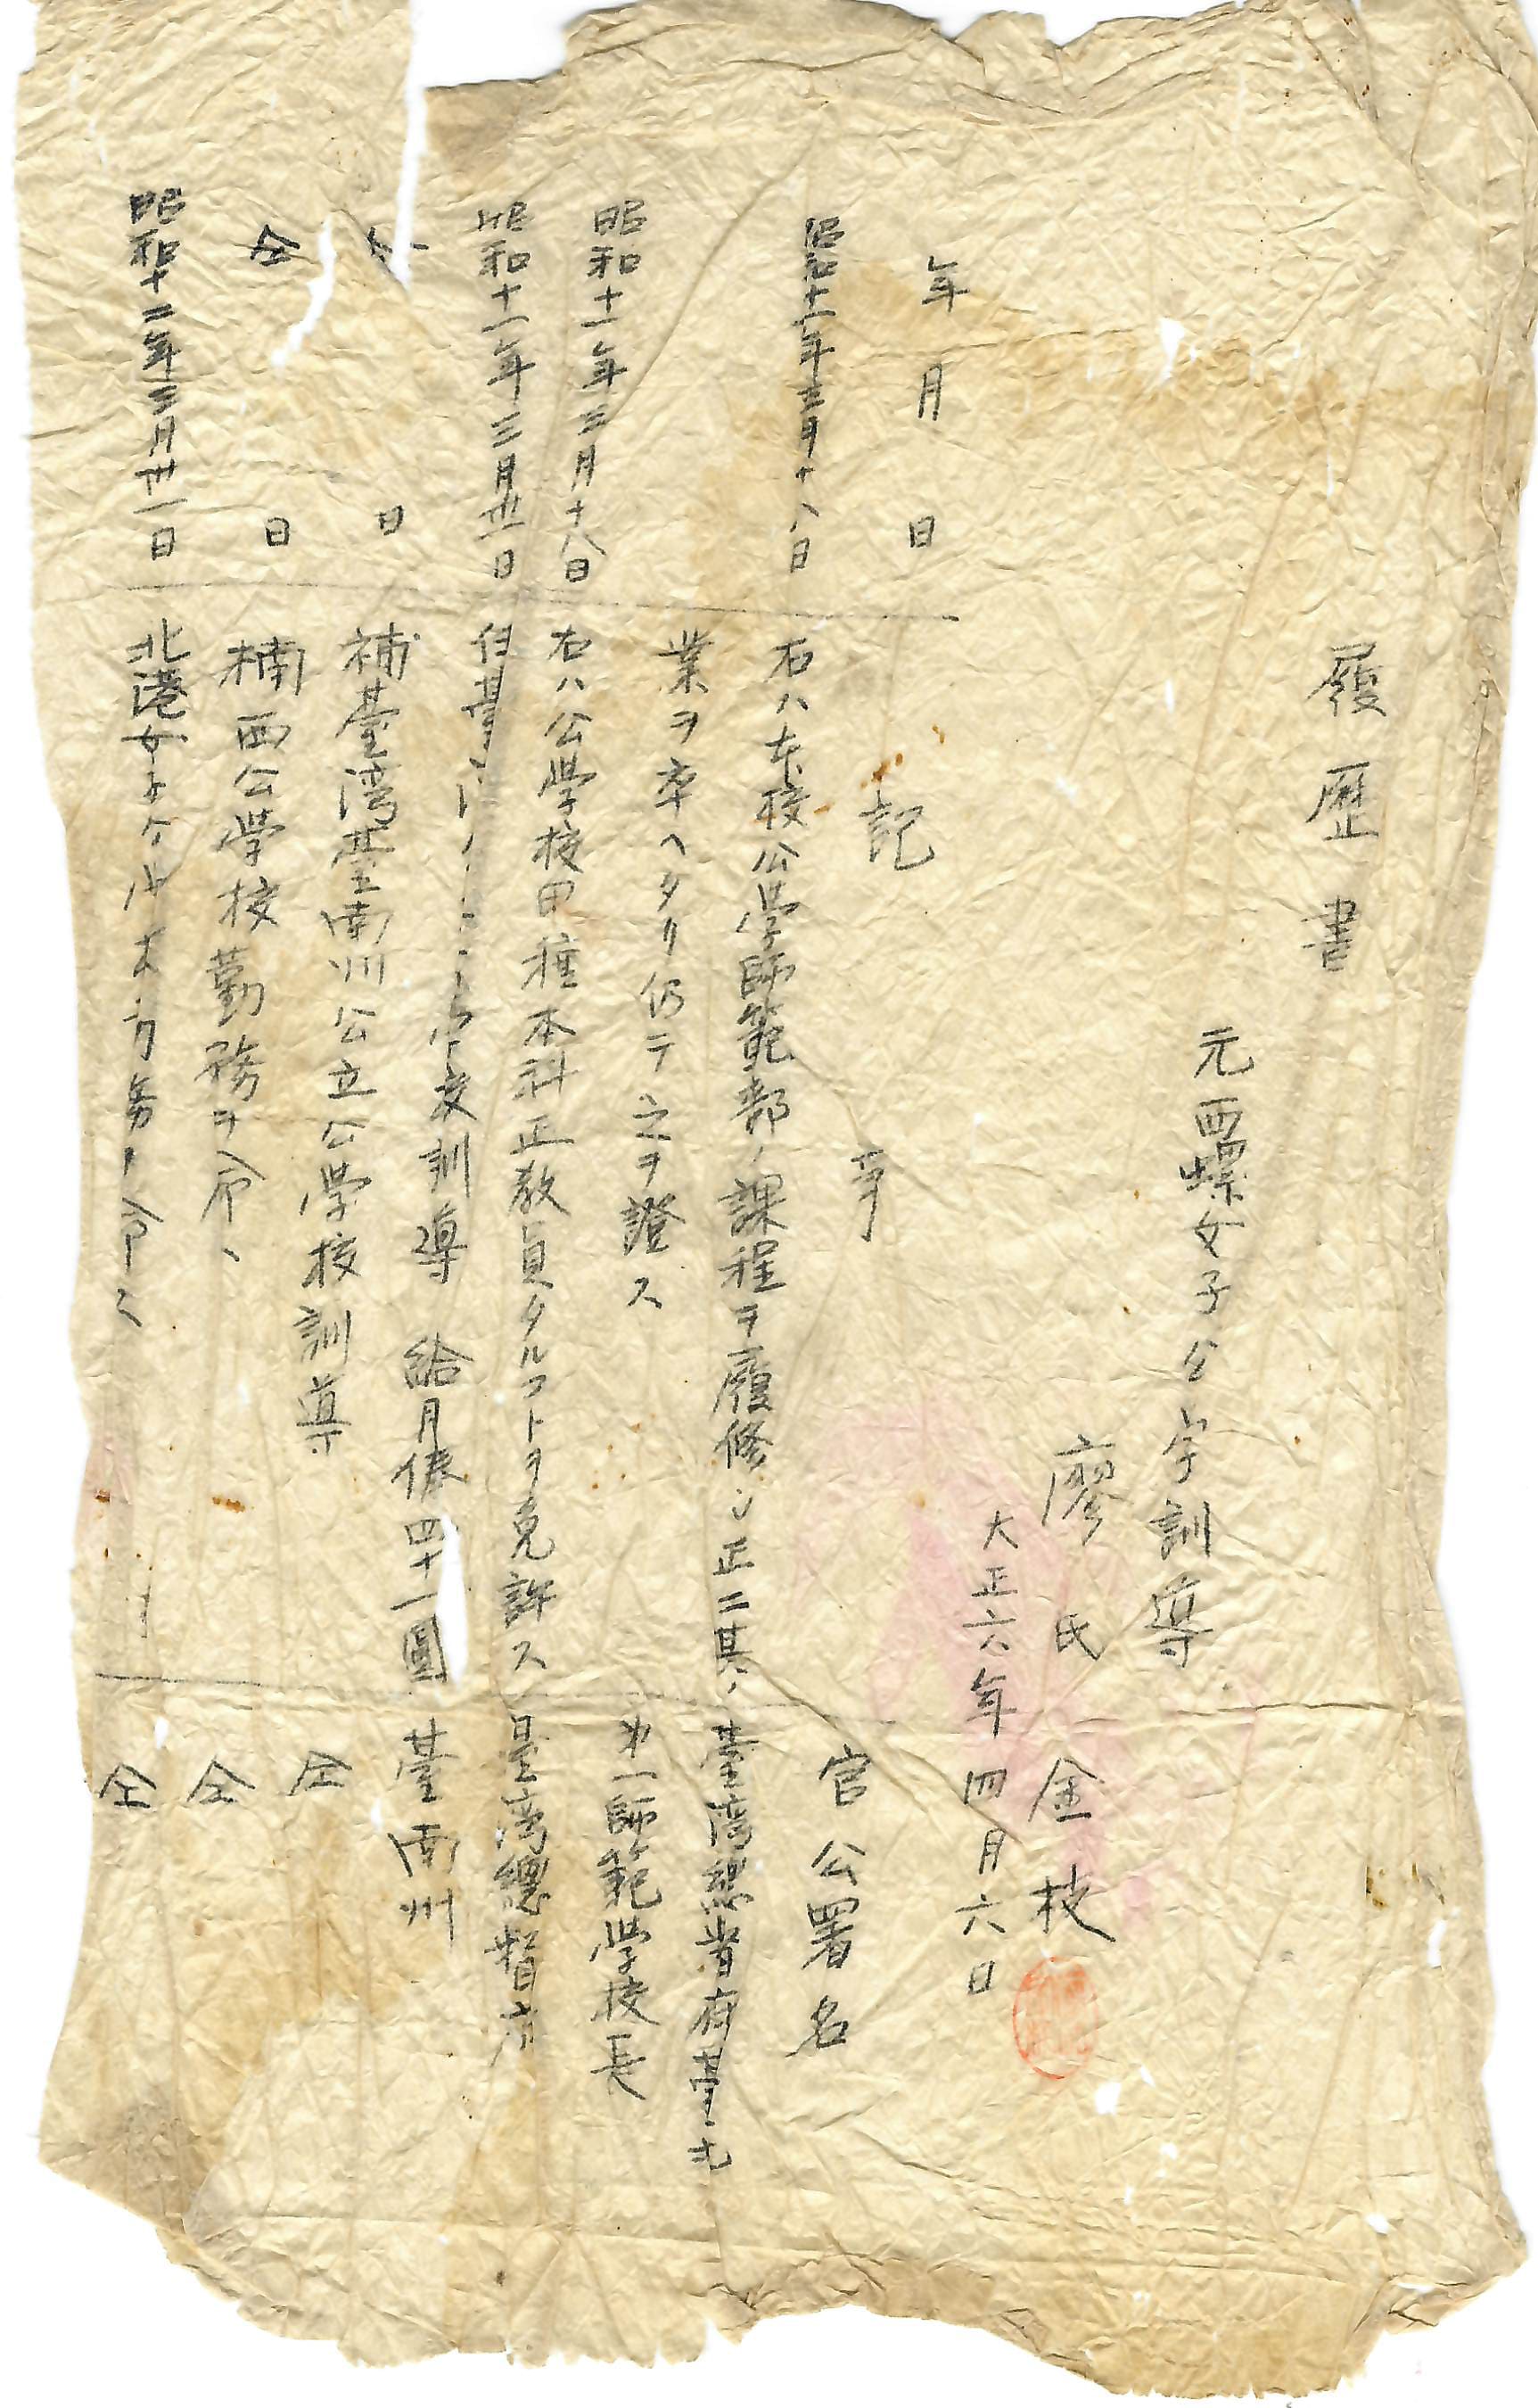 履歴書
元西螺女子公学訓導
廖氏金枝
大正六年四月六日
年月日 記事 官公署名
昭和十一年三月十八日 右ハ本校公學師範部ノ課程ヲ履修シ正ニ其ノ 臺湾總督府臺北
業ヲ卒ヘタリ仍テ之ヲ證ス 第一師範學校長
昭和十一年三月十八日 右ハ公學校甲種本科正教員タルコトヲ免許ス 臺湾總督府
昭和十一年三月卅一日 任臺湾 學校訓導 給月俸四十一圓 臺南州
仝 日 補臺湾臺南州公立公學校訓導 仝
仝 日 楠西公學校勤務ヲ命 仝
昭和十二年三月卅一日 北港女子 務 命 仝